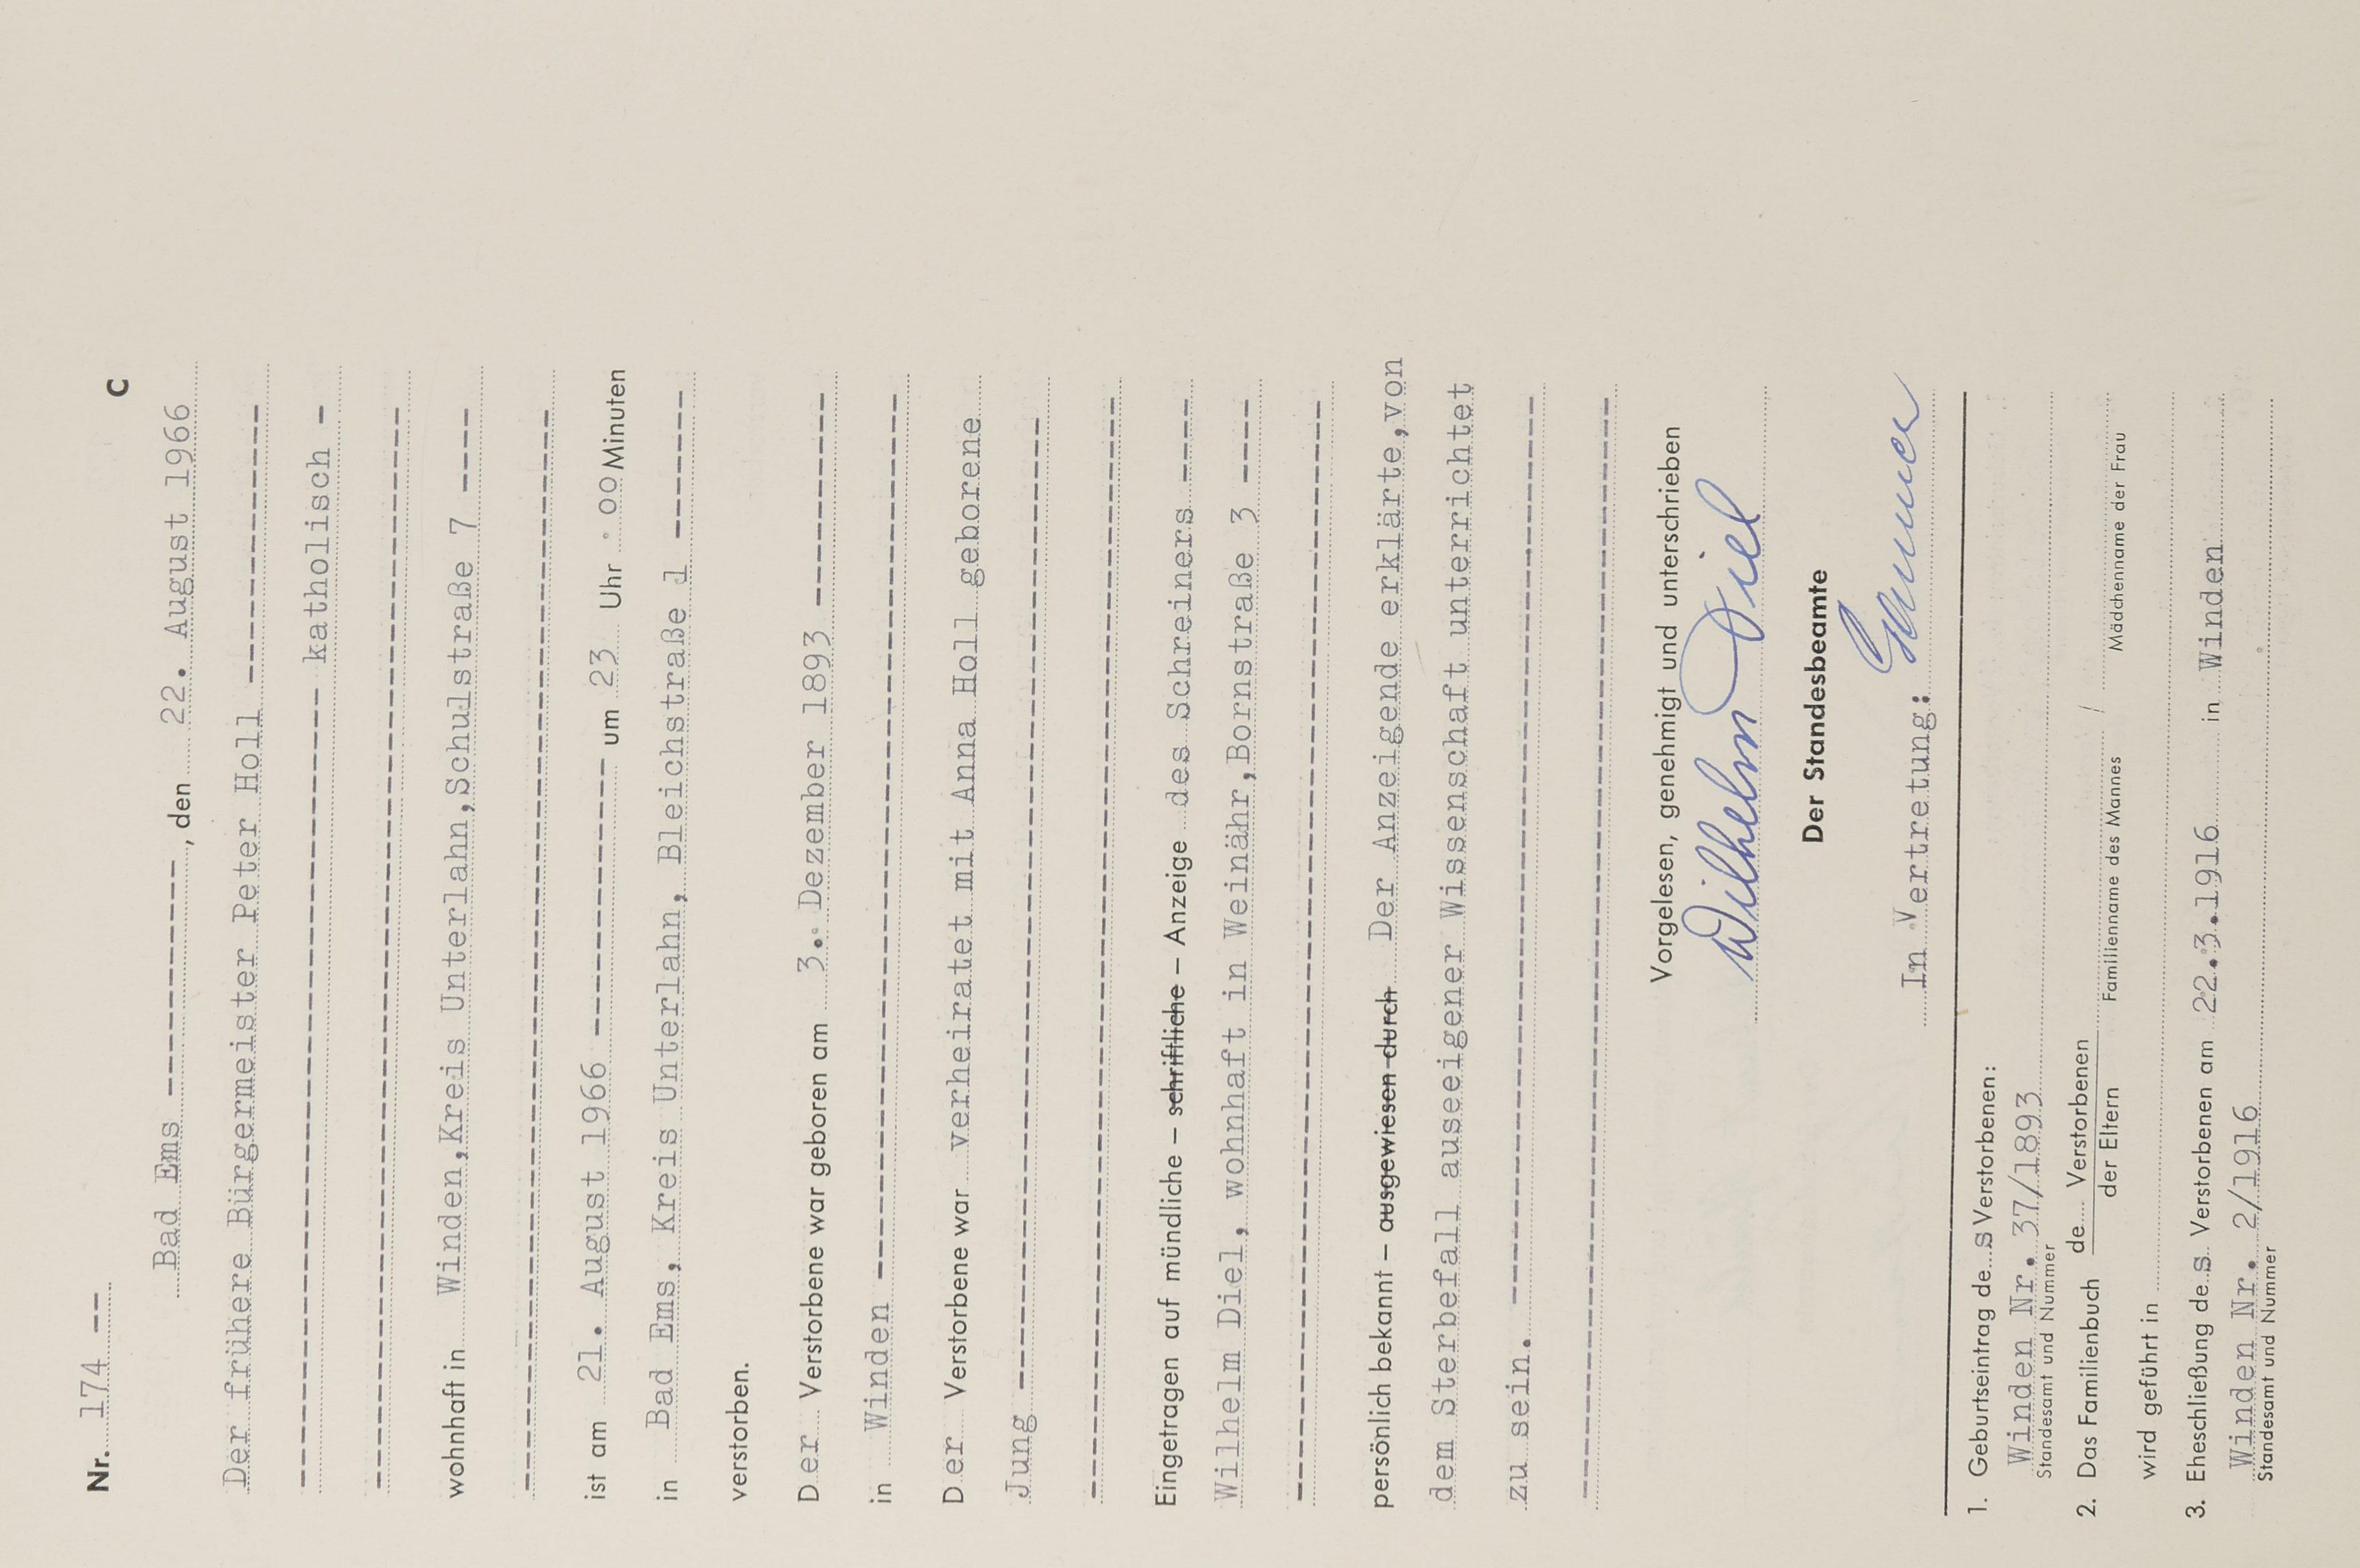 Nr. 174 --
C
Bad Ems ----------, den 22. August 1966
Der frühere Bürgermeister Peter Holl ------------
------------------------------------ katholisch -
-------------------------------------------------
wohnhaft in Winden,Kreis Unterlahn,Schulstraße 7 ----
-------------------------------------------------
ist am 21. August 1966 ------------- um 23 Uhr 00 Minuten
in Bad Ems, Kreis Unterlahn, Bleichstraße 1 -------
verstorben.
Der Verstorbene war geboren am 3. Dezember 1893 ----------
in Winden ----------------------------------------
Der Verstorbene war verheiratet mit Anna Holl geborene
Jung --------------------------------------------
-------------------------------------------------
Eingetragen auf mündliche – schriftliche – Anzeige des Schreiners ----
Wilhelm Diel, wohnhaft in Weinähr,Bornstraße 3 ----
-------------------------------------------------
persönlich bekannt – ausgewiesen durch Der Anzeigende erklärte,von
dem Sterbefall auseeigener Wissenschaft unterrichtet
zu sein. -----------------------------------------
-------------------------------------------------
Vorgelesen, genehmigt und unterschrieben
Wilhelm Diel
Der Standesbeamte
In Vertretung:
1. Geburtseintrag des Verstorbenen:
Winden Nr. 37/1893
Standesamt und Nummer
2. Das Familienbuch de Verstorbenen /
der Eltern Familienname des Mannes Mädchenname der Frau
wird geführt in
3. Eheschließung des Verstorbenen am 22.3.1916 in Winden
Winden Nr. 2/1916
Standesamt und Nummer